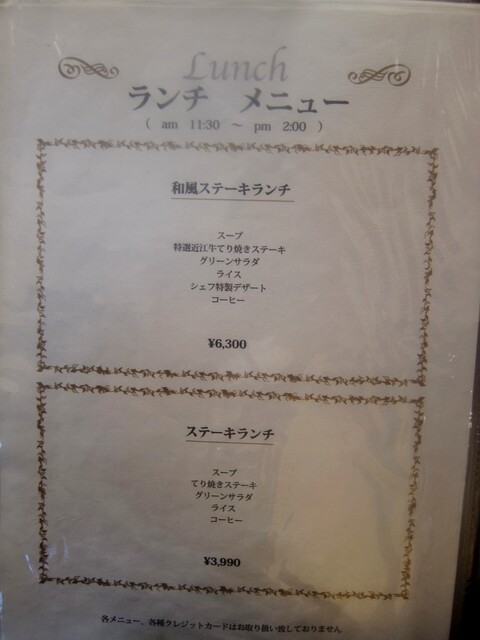 Lunch
ランチ　メニュー
( am 11:30 ～ pm 2:00 )
和風ステーキランチ
スープ
特選近江牛てり焼きステーキ
グリーンサラダ
ライス
シェフ特製デザート
コーヒー
¥6,300
ステーキランチ
スープ
てり焼きステーキ
グリーンサラダ
ライス
コーヒー
¥3,990
各メニュー、各種クレジットカードはお取り扱い致しておりません